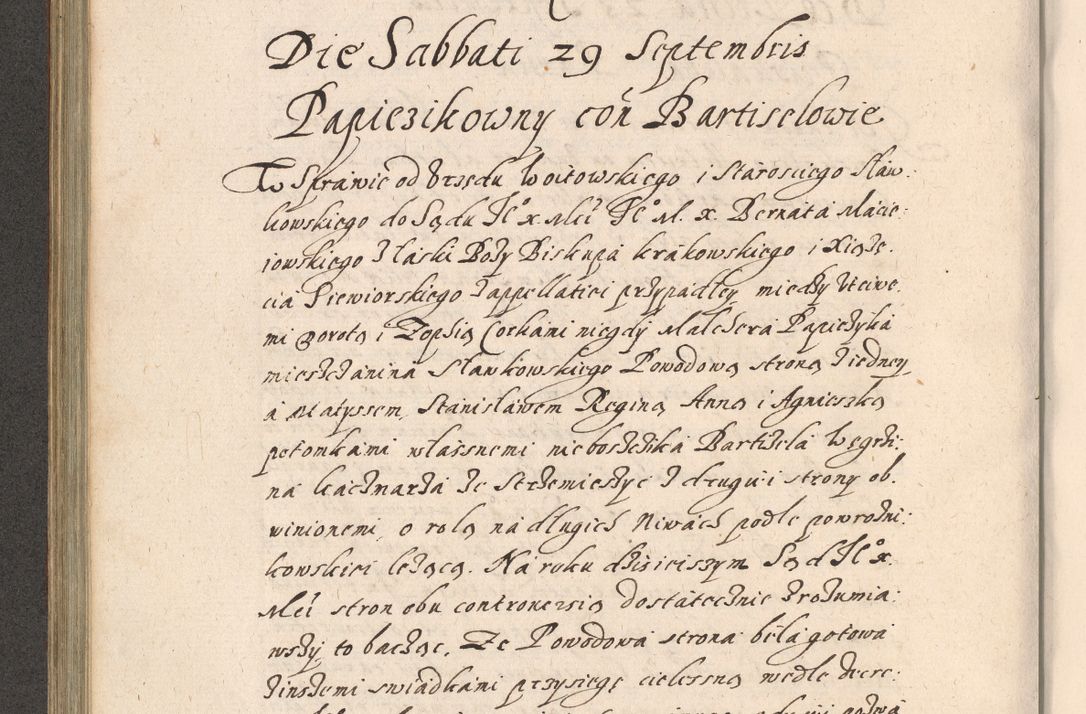 Die Sabbati 29 Septembris
Papiezikowny con Bartiselowie
W Sprawie od Urzędu Woitowskiego i Starosciego Sław:
kowskiego do Sądu Je° x. Mci Je° M. x. Bernata Macie:
iowskiego z łaski Boży Biskupa krakowskiego i Xiążę:
cia Siewiorskiego z appellatiei przypadłey, między Uczciwe:
mi Dorotą i Zophią Corkami niegdy Malchera Papieżyka
mieszczanina Sławkowskiego Powodową stroną z iedney,
a Matyssem, Stanisławem Reginą Anną i Agnieszką
potomkami własnemi nieboszczika Bartizela Węgrzi:
na kaczmarza ze Strzemieszyc z drugiei strony ob:
winionemi, o rolą na długich Niwach podle powrozni:
kowskiei leżącą. Na roku dzisieiszym Sąd Je° x.
Mci stron obu controversią dostatecznie zrozumia:
wszy, to bacząc, Ze Powodowa strona beła gotowa
zinszemi swiadkami przysięgę cielessną wedle decre: